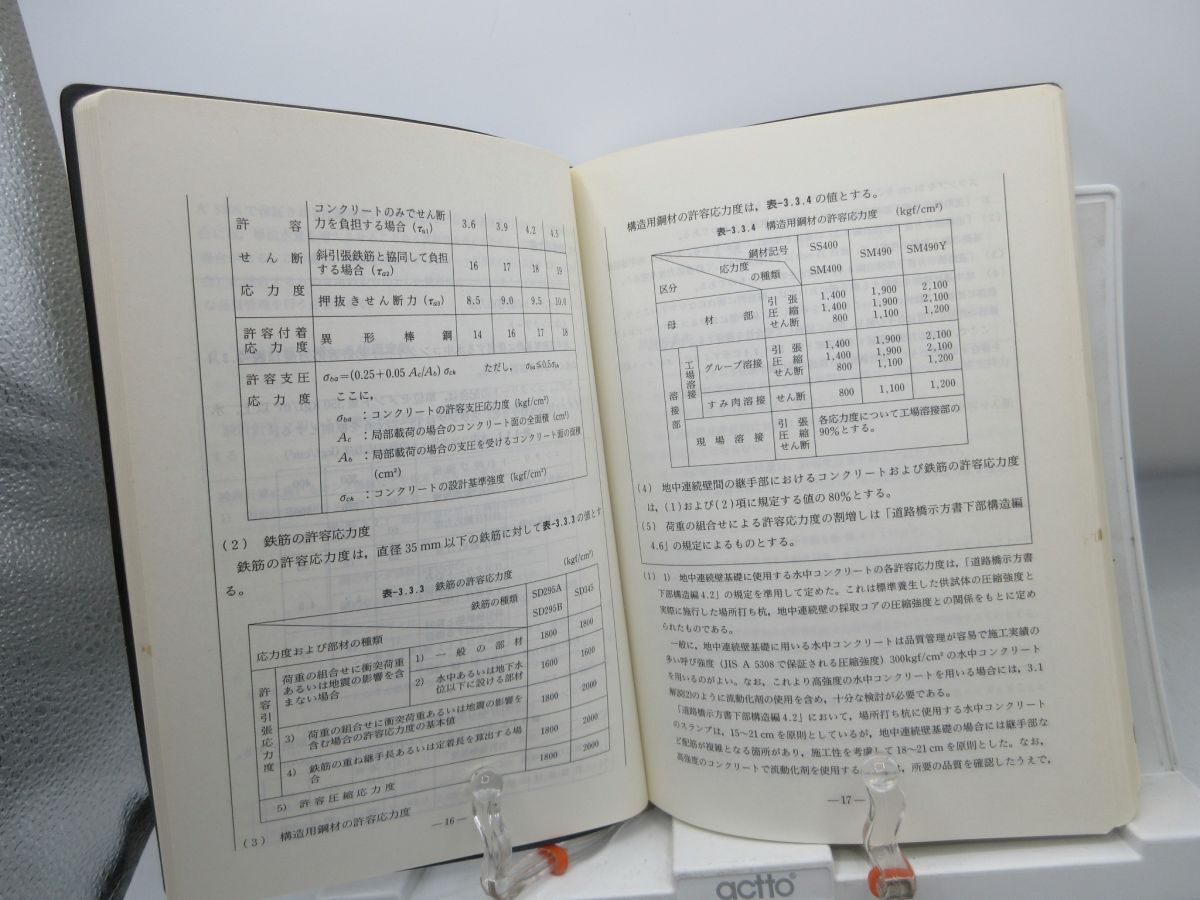 許容せん断応力度
コンクリートのみでせん断
力を負担する場合(τa1) 3.6 3.9 4.2 4.3
斜引張鉄筋と協同して負担
する場合(τa2) 16 17 18 19
押抜きせん断力(τa3) 8.5 9.0 9.5 10.0
許容付着
応力度 異形棒鋼 14 16 17 18
許容支圧 σba=(0.25+0.05 Ac/Ab) σck ただし,
応力度 ここに,
σba:コンクリートの許容支圧応力度(kgf/cm²)
Ac:局部載荷の場合のコンクリート面の全面積(cm²)
Ab:局部載荷の場合の支圧を受けるコンクリート面の面積
(cm²)
σck:コンクリートの設計基準強度(kgf/cm²)
(2) 鉄筋の許容応力度
鉄筋の許容応力度は,直径35mm以下の鉄筋に対して表-3.3.3の値とす
る。
表-3.3.3 鉄筋の許容応力度 (kgf/cm²)
鉄筋の種類 SD295A SD295B SD345
応力度および部材の種類
許容引張応力度
荷重の組合せに衝突荷重
あるいは地震の影響を含
まない場合
1) 一般の部材 1800 1800
2) 水中あるいは地下水
位以下に設ける部材 1600 1600
3) 荷重の組合せに衝突荷重あるいは地震の影響を
含む場合の許容応力度の基本値 1800 2000
4) 鉄筋の重ね継手長あるいは定着長を算出する場
合 1800 2000
5) 許容圧縮応力度 1800 2000
(3) 構造用鋼材の許容応力度
—16—
構造用鋼材の許容応力度は,表-3.3.4の値とする。
表-3.3.4 構造用鋼材の許容応力度 (kgf/cm²)
鋼材記号 SS400 SM400 SM490 SM490Y
応力度の種類
区分
母材部 引張 1,400 1,900 2,100
圧縮 1,400 1,900 2,100
せん断 800 1,100 1,200
溶接部
工場溶接
グルーブ溶接 引張 1,400 1,900 2,100
圧縮 1,400 1,900 2,100
せん断 800 1,100 1,200
すみ肉溶接 せん断 800 1,100 1,200
現場溶接 引張 圧縮 せん断
各応力度について工場溶接部の
90%とする。
(4) 地中連続壁間の継手部におけるコンクリートおよび鉄筋の許容応力度
は,(1)および(2)項に規定する値の80%とする。
(5) 荷重の組合せによる許容応力度の割増しは「道路橋示方書下部構造編
4.6」の規定によるものとする。
(1) 1) 地中連続壁基礎に使用する水中コンクリートの各許容応力度は,「道路橋示方書
下部構造編4.2」の規定を準用して定めた。これは標準養生した供試体の圧縮強度と
実際に施行した場所打ち杭,地中連続壁の採取コアの圧縮強度との関係をもとに定め
られたものである。
一般に,地中連続壁基礎に用いる水中コンクリートは品質管理が容易で施工実績の
多い呼び強度(JIS A 5308で保証される圧縮強度)300kgf/cm²の水中コンクリート
を用いるのがよい。なお,これより高強度の水中コンクリートを用いる場合には,3.1
解説(2)のように流動化剤の使用を含め,十分な検討が必要である。
「道路橋示方書下部構造編4.2」において,場所打ち杭に使用する水中コンクリート
のスランプは,15~21cmを原則としているが,地中連続壁基礎の場合には継手部な
ど配筋が複雑となる箇所があり,施工性を考慮して18~21cmを原則とした。なお,
高強度のコンクリートで流動化剤を使用する は,所要の品質を確認したうえで,
—17—
actto